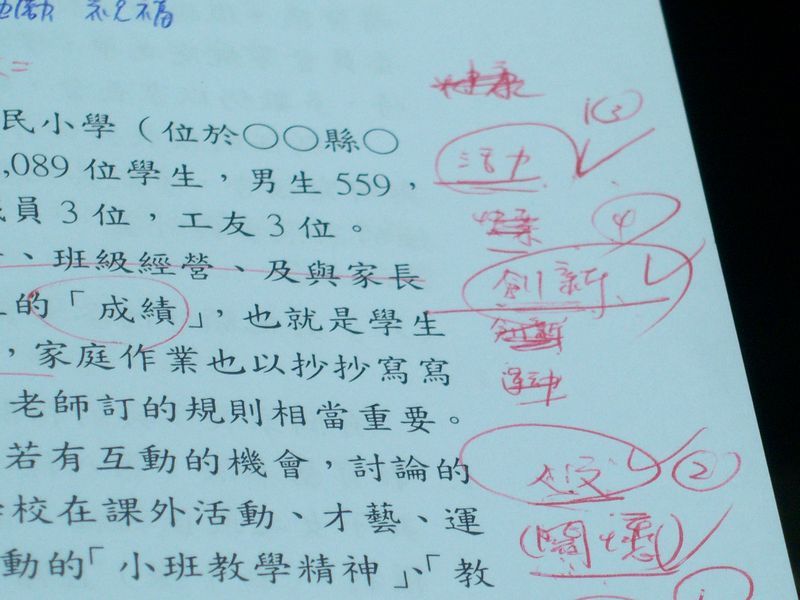 祝福
健康
民小學（位於○○縣○
1(3)
,089 位學生，男生 559，
活力
員 3 位，工友 3 位。
4
、班級經營、及與家長
創新
的「成績」，也就是學生
創新
，家庭作業也以抄抄寫寫
老師訂的規則相當重要。
若有互動的機會，討論的
2
校在課外活動、才藝、運
(關懷)
動的「小班教學精神」、「教